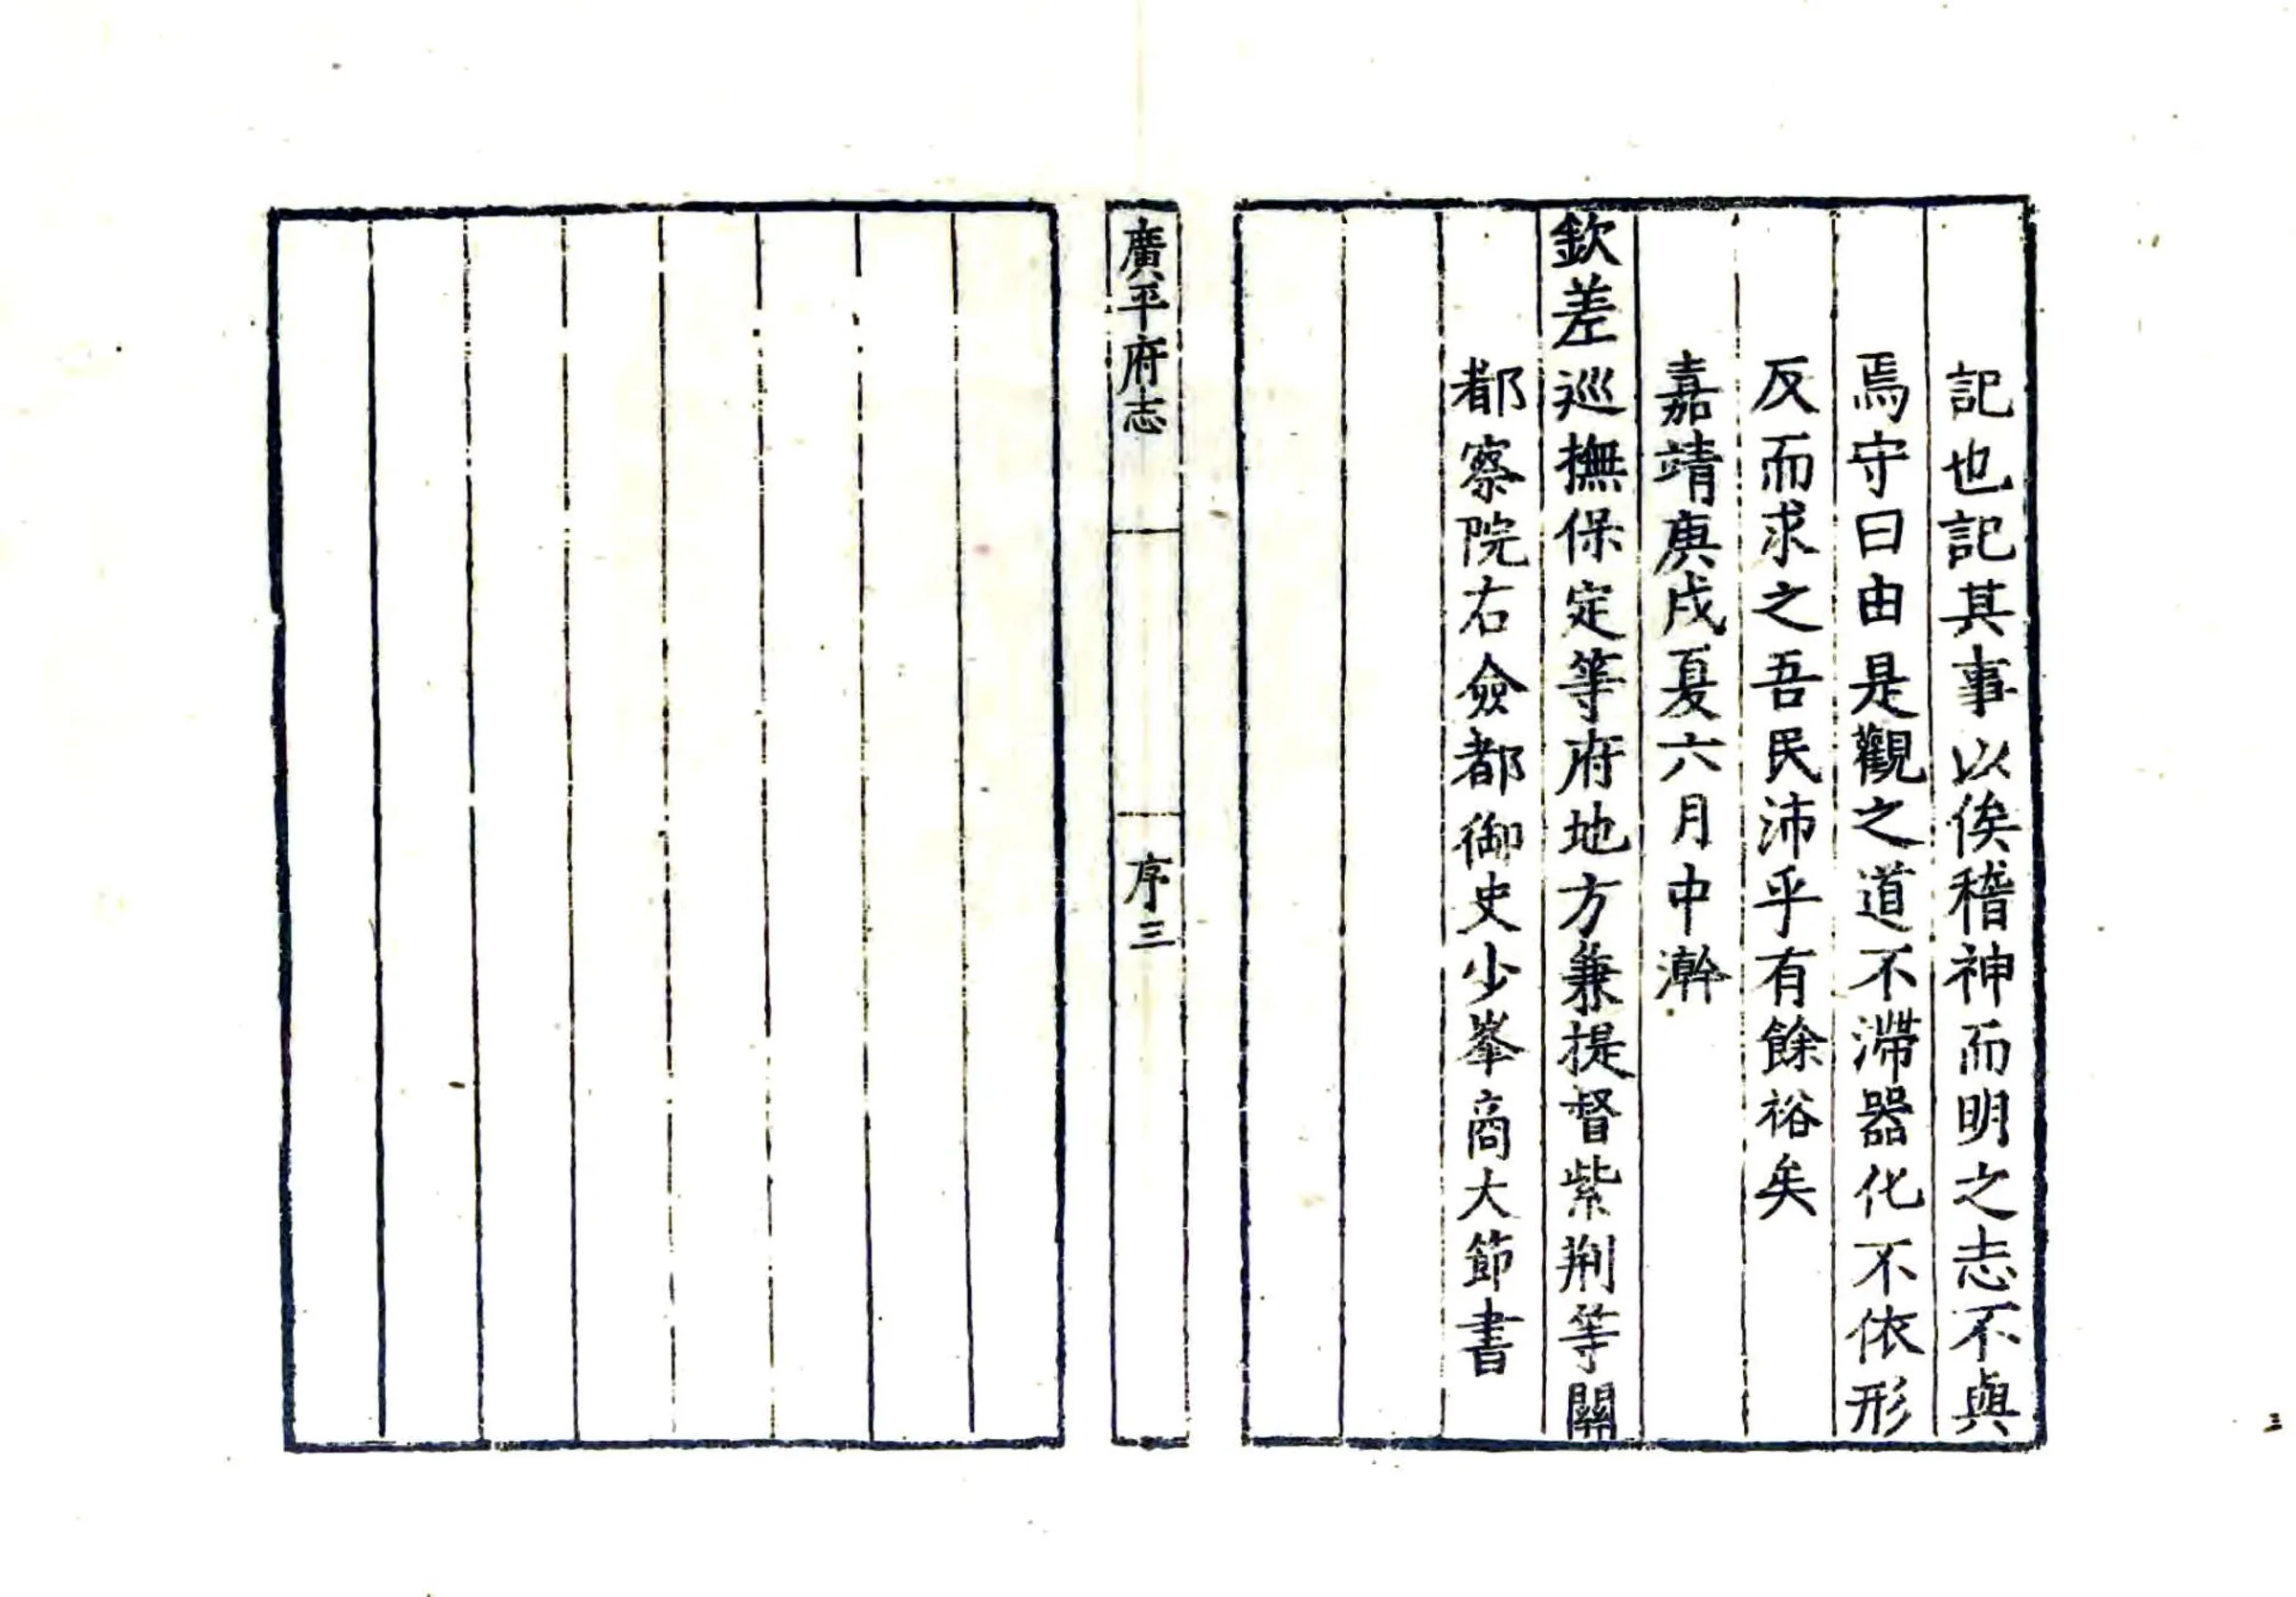 記也記其事以俟稽神而明之志不與
焉守曰由是觀之道不滯器化不依形
反而求之吾民沛乎有餘裕矣
嘉靖庚戌夏六月中澣
欽差巡撫保定等府地方兼提督紫荆等關
都察院右僉都御史少峯商大節書
廣平府志
序三
三